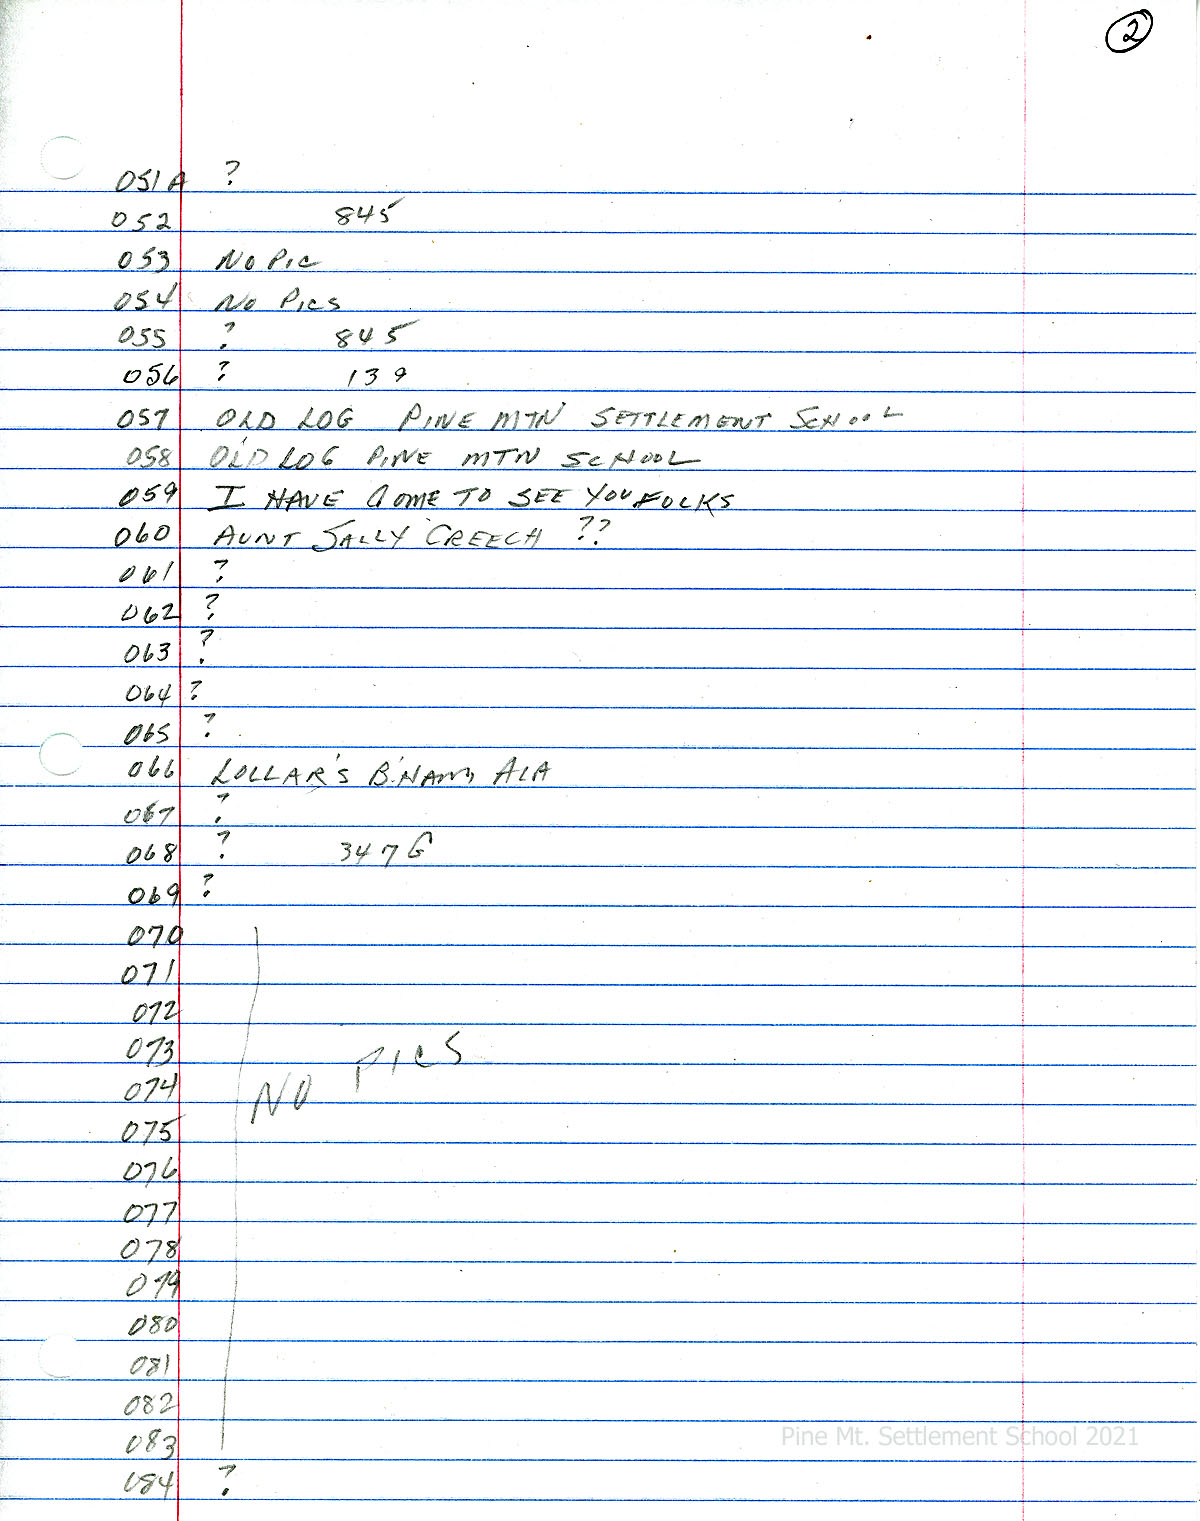 2
051A ?
052 845
053 NO PIC
054 NO PICS
055 ? 845
056 ? 139
057 OLD LOG PINE MTN SETTLEMENT SCHOOL
058 OLD LOG PINE MTN SCHOOL
059 I HAVE COME TO SEE YOU FOLKS
060 AUNT SALLY CREECH ??
061 ?
062 ?
063 ?
064 ?
065 ?
066 LOLLAR'S B'HAM, ALA
067 ?
068 ? 347G
069 ?
070
071
072
073
NO PICS
074
075
076
077
078
079
080
081
082
083
Pine Mt. Settlement School 2021
084 ?